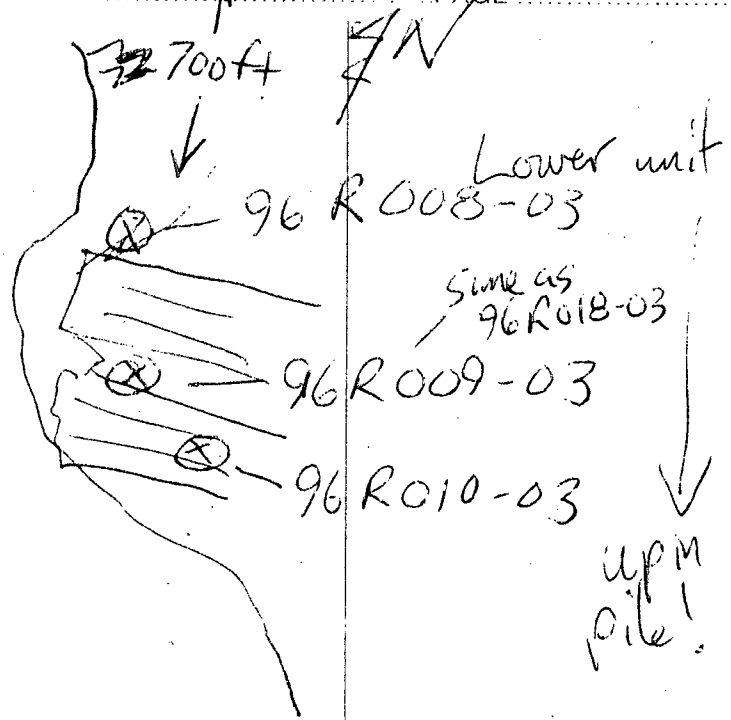 PAGE
700ft
N
Lower unit
96 R 008-03
same as
96R018-03
96 R009-03
96 R010-03
up in
pile!